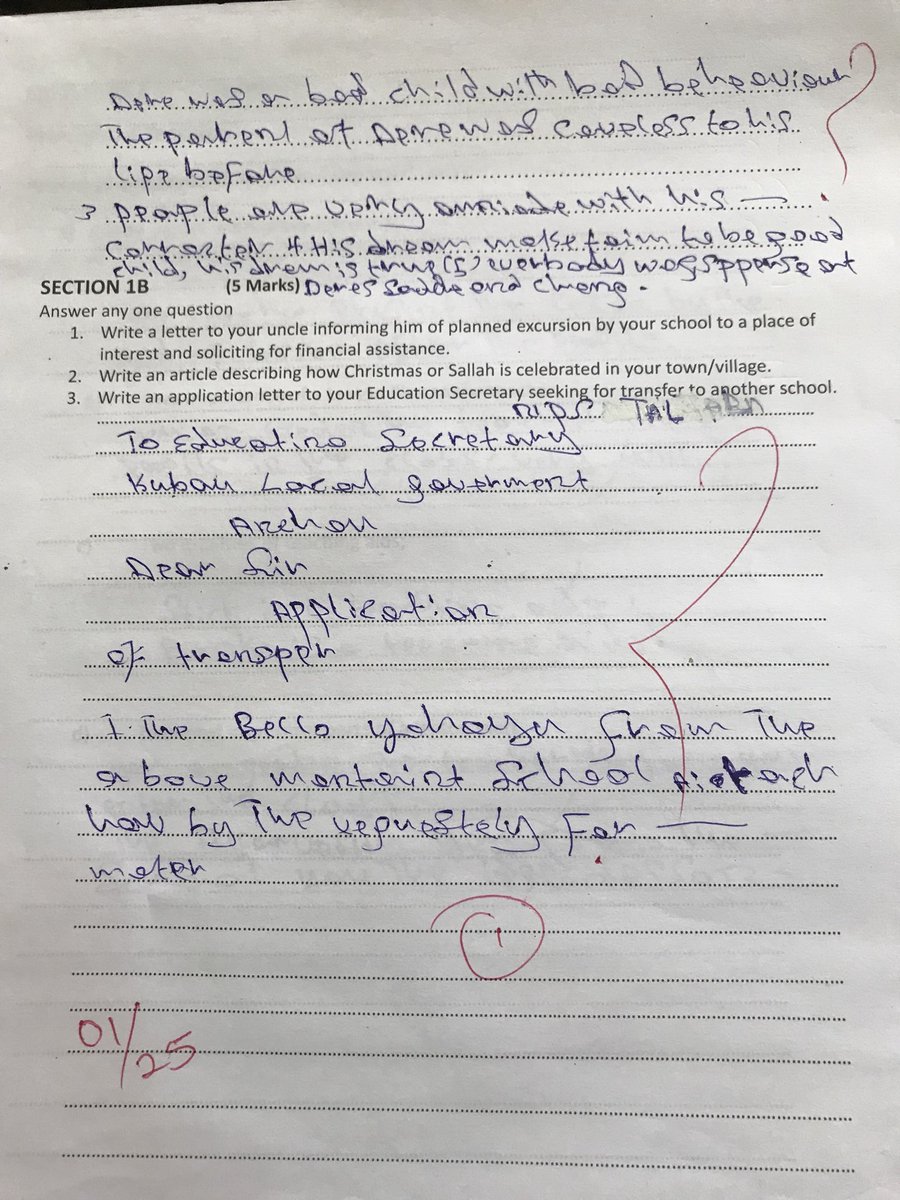 Dere was a bad child with bad behaviour
The parent of Dere was careless to his
lipe before
3 people are very with his —
Correcter 4 His dream make faim to be good
child, his drem is true (5) everbody was sppense at
SECTION 1B (5 Marks) Deres sadde and cheng.
Answer any one question
1. Write a letter to your uncle informing him of planned excursion by your school to a place of
interest and soliciting for financial assistance.
2. Write an article describing how Christmas or Sallah is celebrated in your town/village.
3. Write an application letter to your Education Secretary seeking for transfer to another school.
TAL
To Educatino Secretary
Kubau Local goverment
Anchau
Dear Sir
Application
of transper
I. The Bello yahaya From The
above School
how by The For —
mater
1
01/25